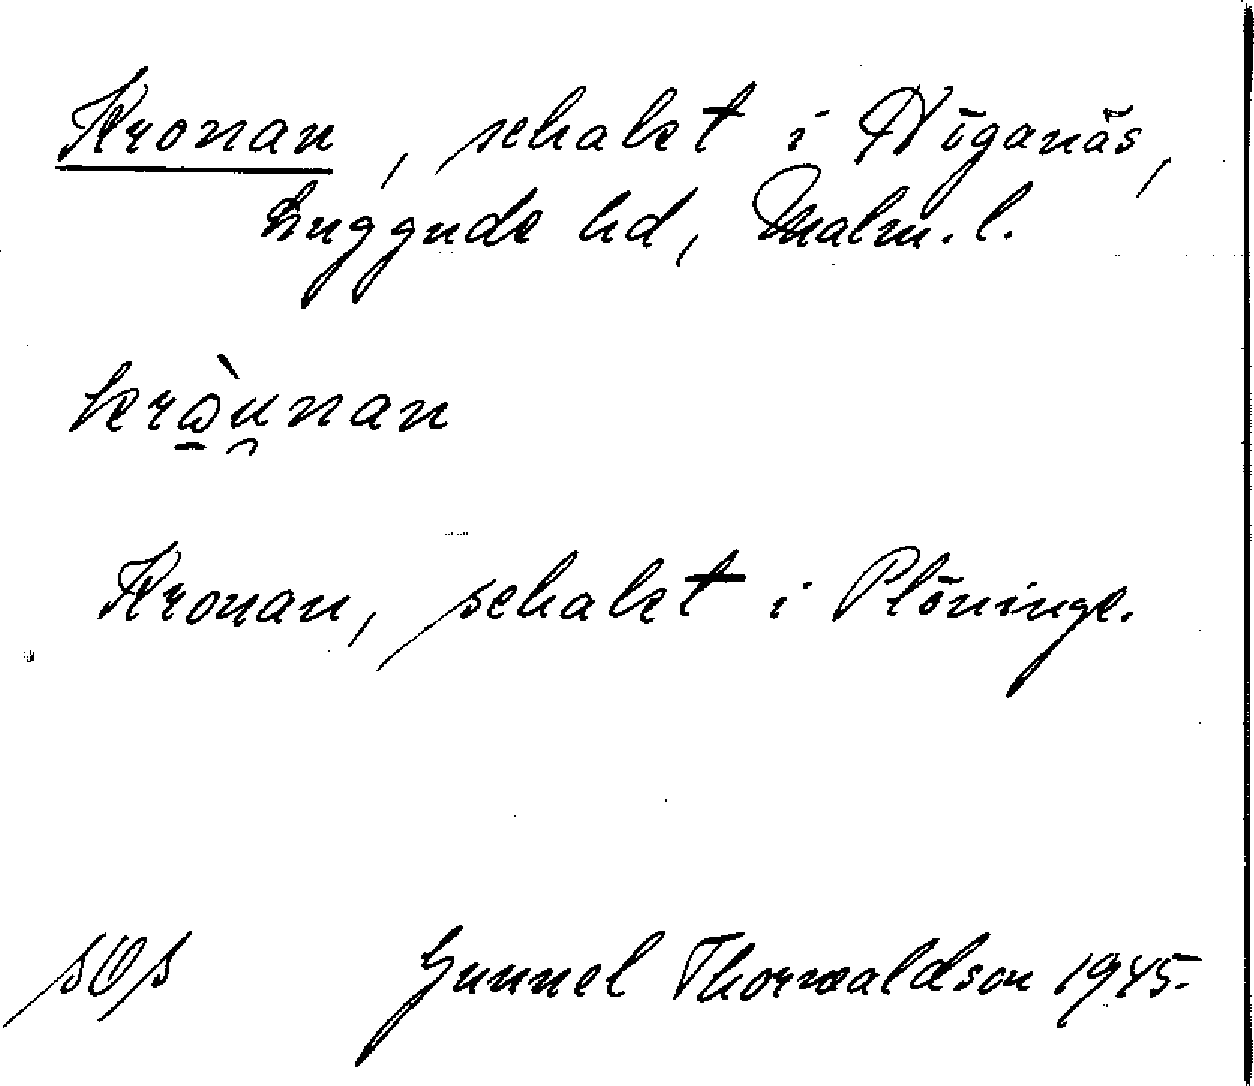 Kronan, schakt i Höganäs,
Luggude hd, Malm. l.
kràu̯nan
Kronan, schakt i Plöninge.
Gunnel Thorwaldson 1945.